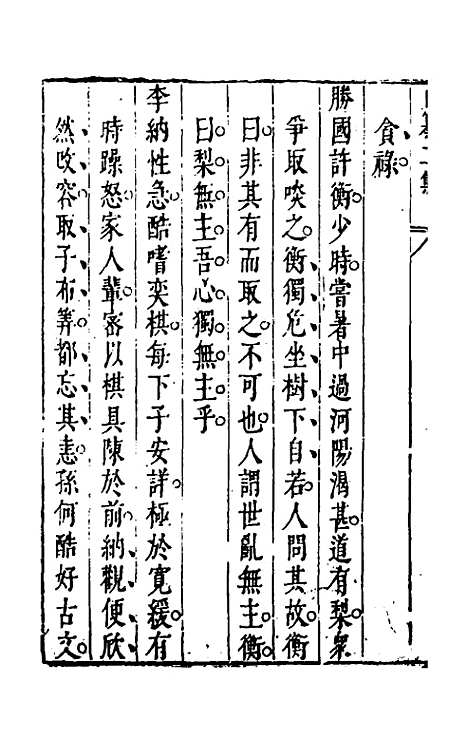 貪祿
勝國許衡少時嘗暑中過河陽渴甚道有梨衆
爭取啖之衡獨危坐樹下自若人問其故衡
曰非其有而取之不可也人謂世亂無主衡
曰梨無主吾心獨無主乎
李納性急酷嗜奕棋每下子安詳極於寬緩有
時躁怒家人輩密以棋具陳於前納觀便欣
然改容取子布筭都忘其恚孫何酷好古文